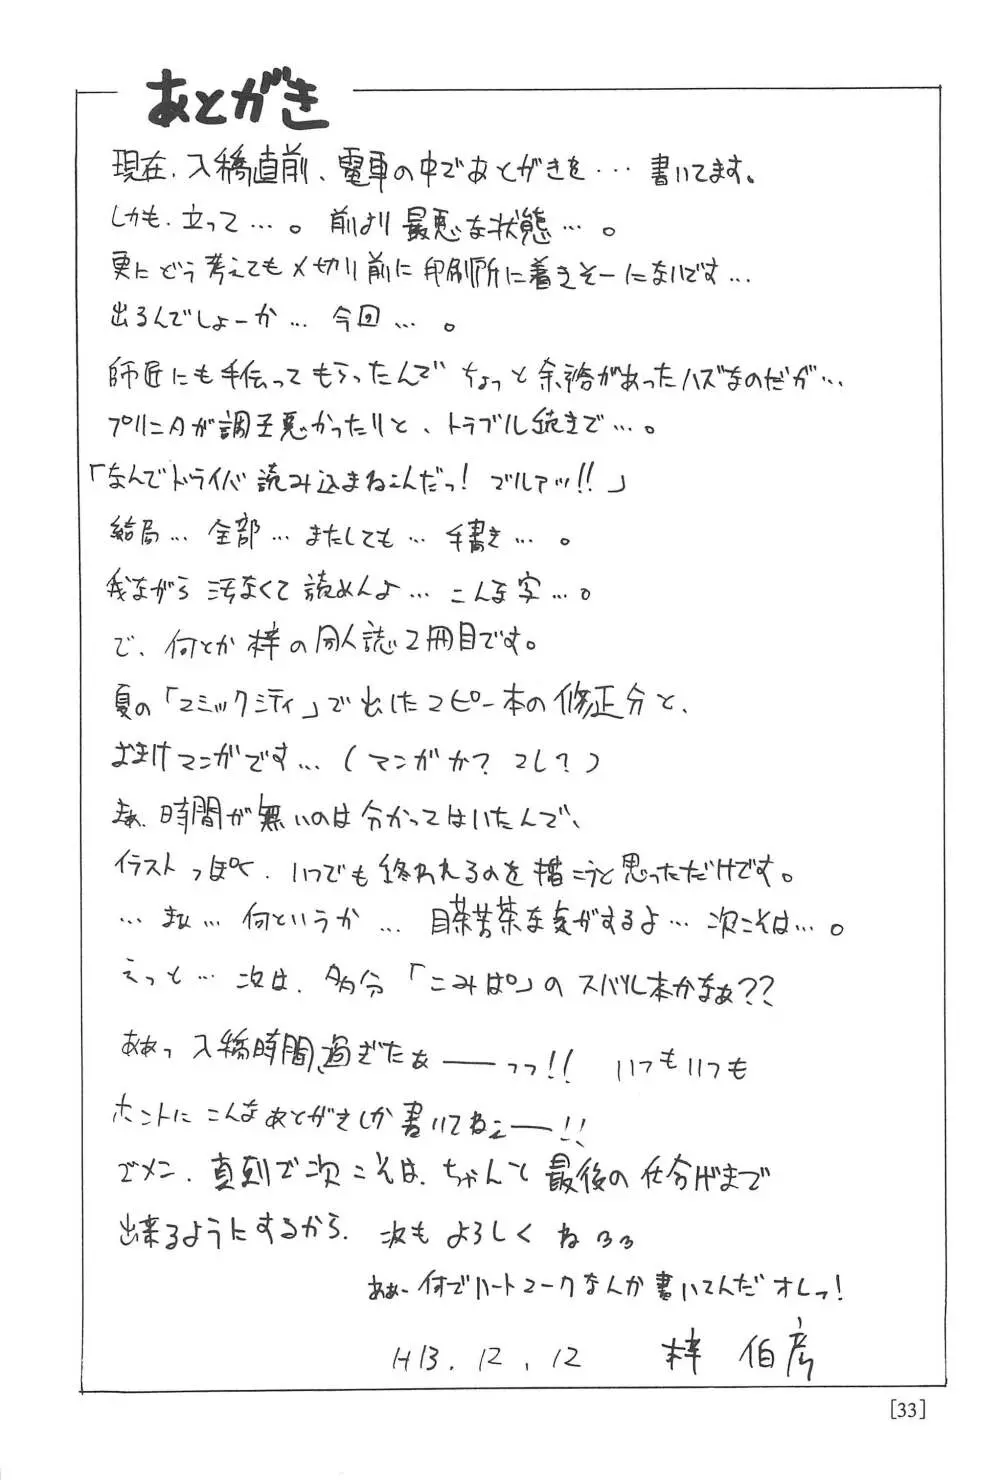 あとがき
現在、入稿直前、電車の中であとがきを・・・書いてます。
しかも、立って…。前より最悪な状態…。
更にどう考えても〆切り前に印刷所に着きそーにないです…
出るんでしょーか…今回…。
師匠にも手伝ってもらったんでちょっと余裕があったハズなのだが…
プリンタが調子悪かったりと、トラブル続きで…。
「なんでドライバ読み込まねこんだっ！ゴルァッ!!」
結局…全部…またしても…手書き…。
我ながら汚なくて読めんよ…こんな字…。
で、何とか梓の同人誌2冊目です。
夏の「コミックシティ」で出したコピー本の修正分と、
おまけマンガです…（マンガか？コレ？）
まぁ、時間が無いのは分かってはいたんで、
イラストっぽく、いつでも終われるのを描こうと思っただけです。
…まぁ…何というか…目茶苦茶な気がするよ…次こそは…。
えっと…次は、多分「こみぱ」のスバル本かなぁ??
ああっ入稿時間、過ぎたぁ――っっ!!いつもいつも
ホントにこんなあとがきしか書いてねぇ――!!
ゴメン、真剣で次こそは、ちゃんと最後の仕上げまで
出来るようにするから、次もよろしくね
ああ、何でハートマークなんか書いてんだオレっ！
H13.12.12 梓 伯彦
[33]